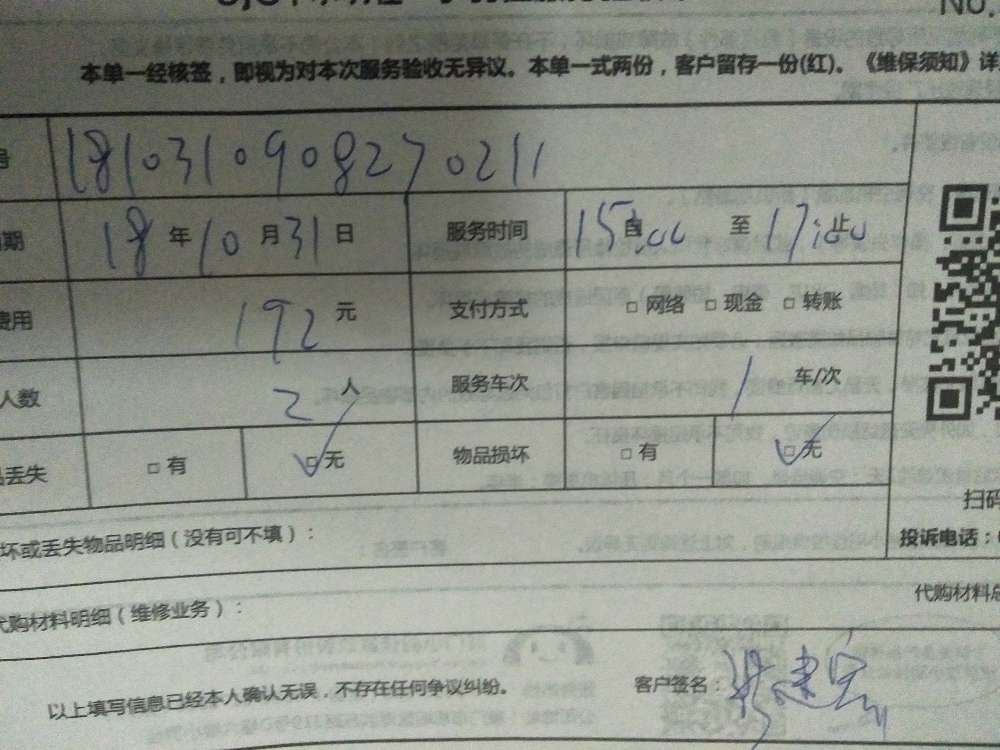 No.
本单一经核签，即视为对本次服务验收无异议。本单一式两份，客户留存一份(红)。《维保须知》详
号 1810310908270211
期 18 年 10 月 31 日 服务时间 15:00 自 至 17:00 止
费用 192 元 支付方式 □ 网络 □ 现金 □ 转账
人数 2 人 服务车次 1 车/次
品丢失 □ 有 ☑ 无 物品损坏 □ 有 ☑ 无
扫码
坏或丢失物品明细（没有可不填）：
投诉电话：
代购材料明细（维修业务）：
代购材料总
以上填写信息已经本人确认无误，不存在任何争议纠纷。 客户签名：